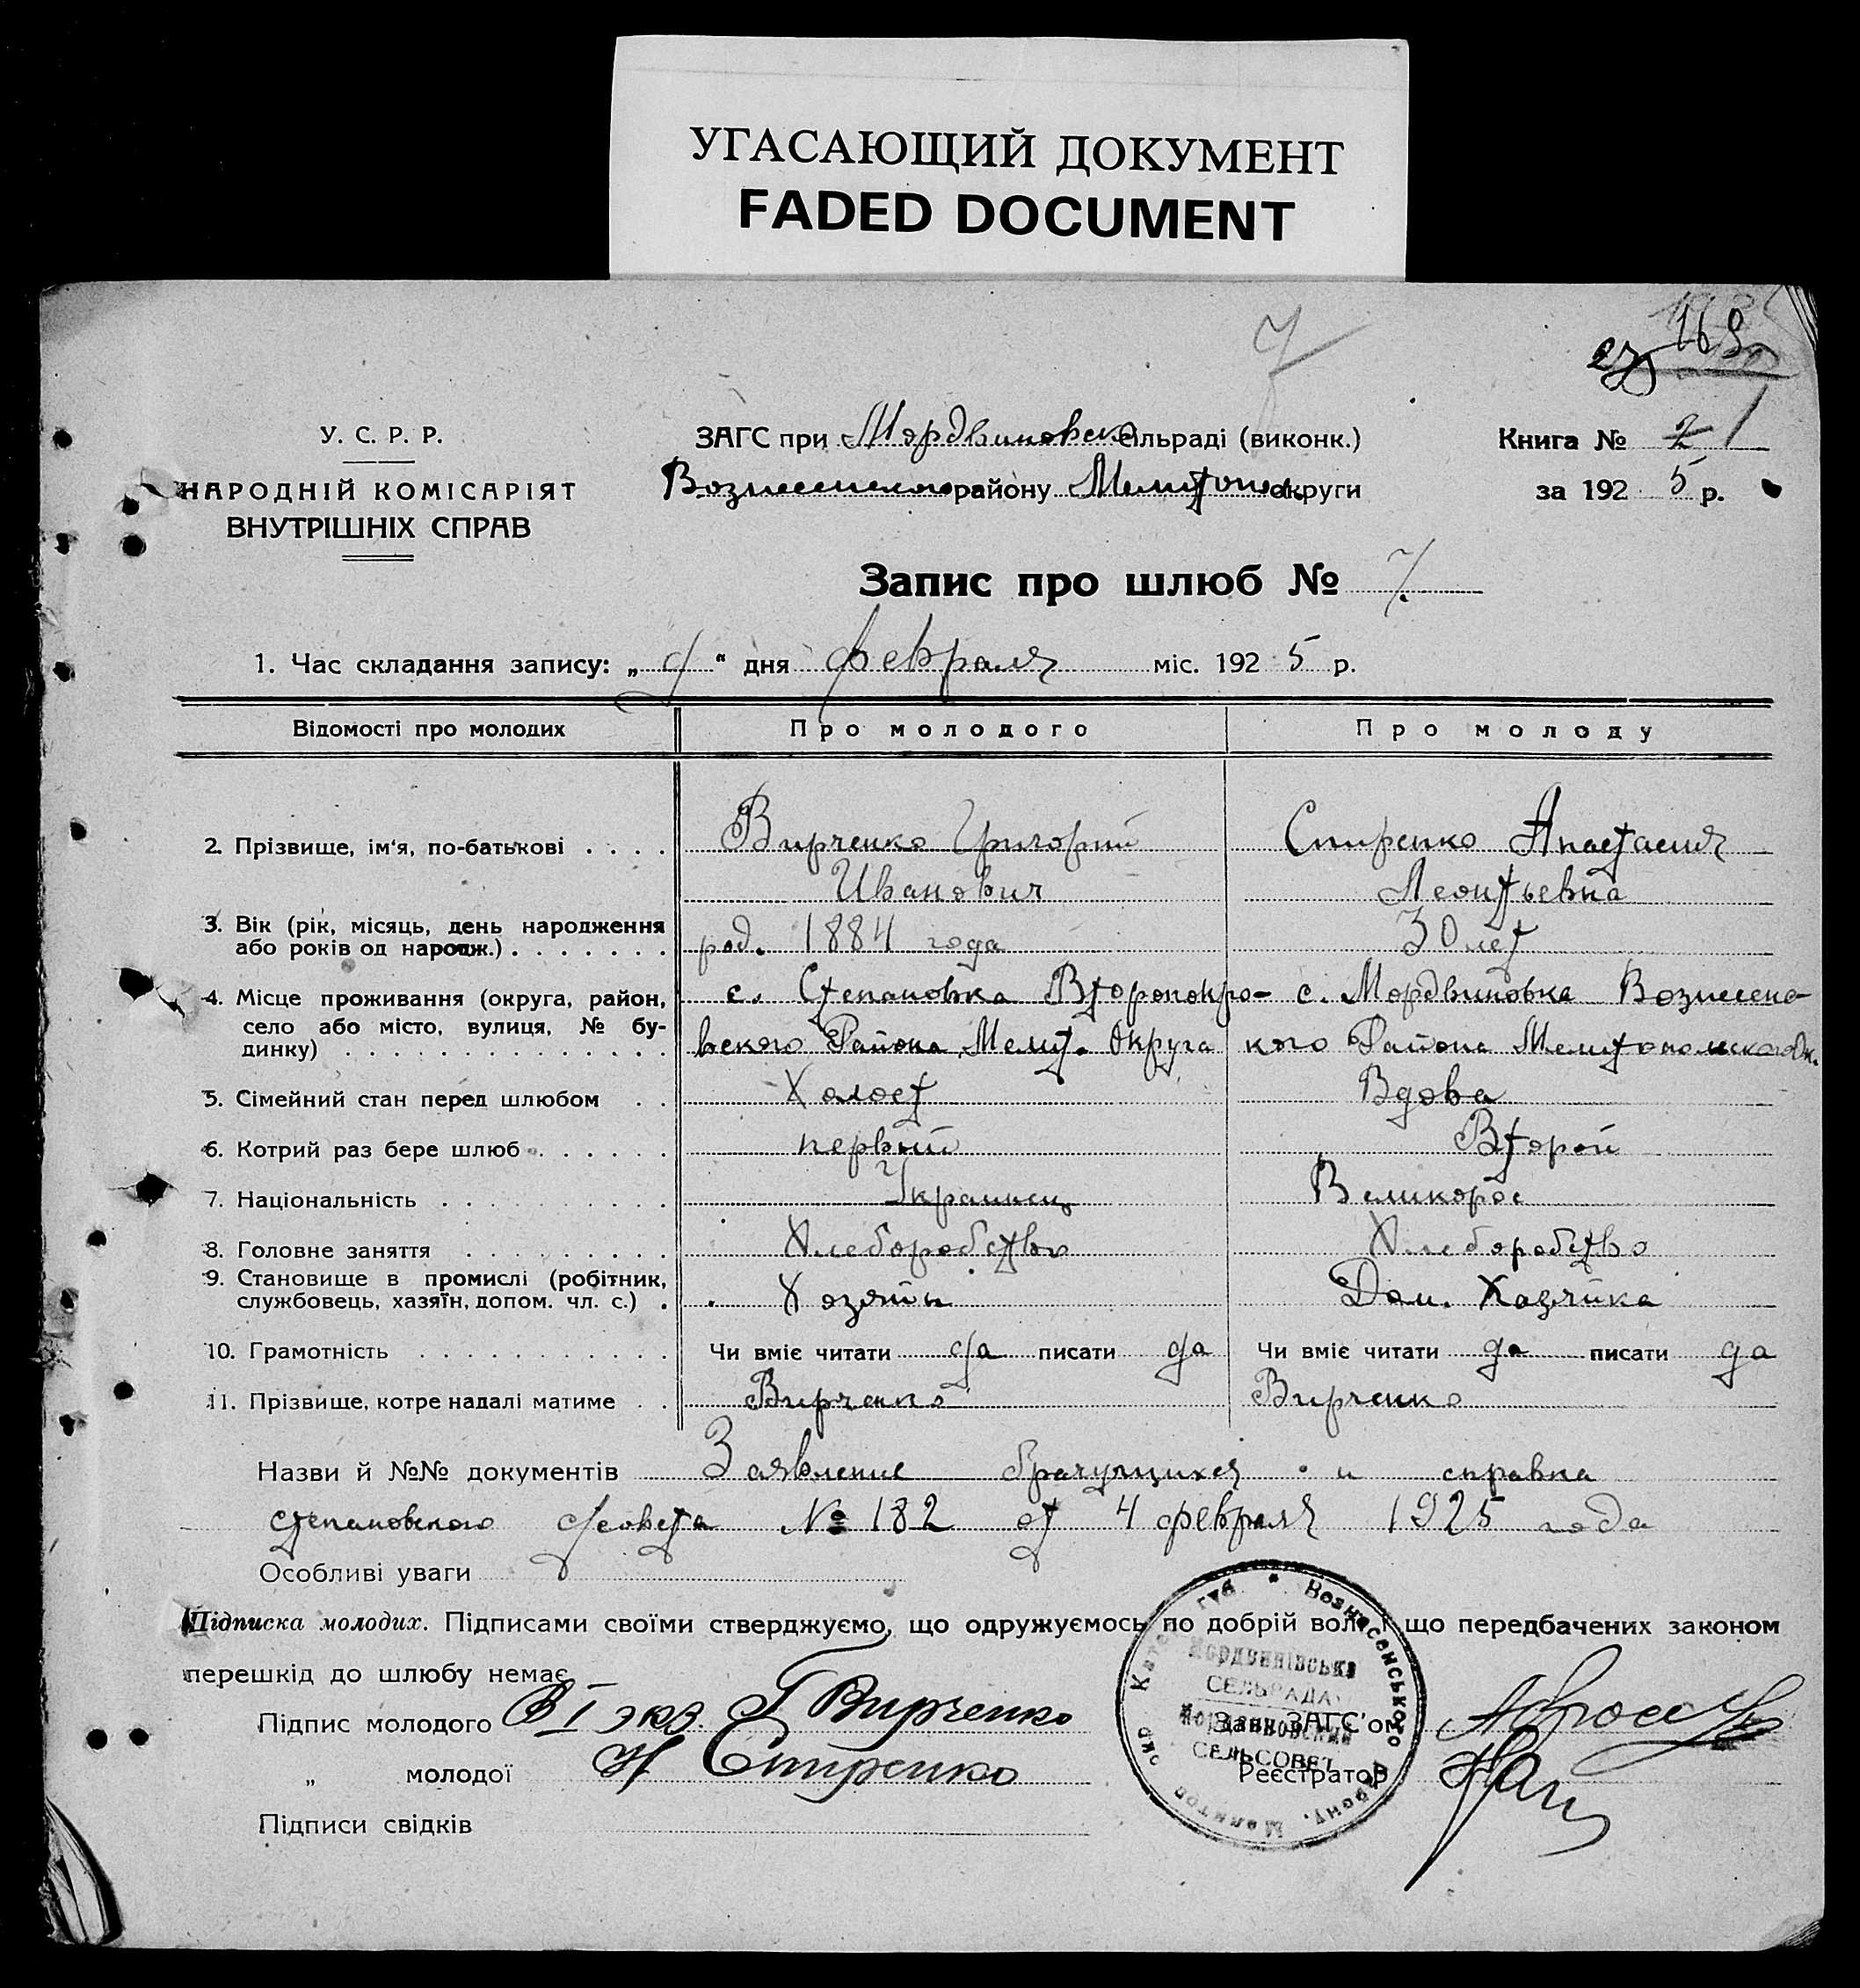 УГАСАЮЩИЙ ДОКУМЕНТ
FADED DOCUMENT
7
27 169
У. С. Р. Р.
НАРОДНІЙ КОМІСАРІЯТ
ВНУТРІШНІХ СПРАВ
ЗАГС при Мордвиновск сільраді (виконк.)
Вознесенского району Мелитопол округи
Книга № 2 1
за 1925 р.
Запис про шлюб № 7.
1. Час складання запису: „ 9 “ дня февраля міс. 1925 р.
Відомості про молодих Про молодого Про молоду
2. Прізвище, ім'я, по-батькові . . . . Вирченко Григорий Спиренко Анастасия
Иванович Леонтьевна
3. Вік (рік, місяць, день народження
або років од народж.) . . . . . . . род. 1884 года 30 лет
4. Місце проживання (округа, район, с. Степановка Второпокро- с. Мордвиновка Вознесенс-
село або місто, вулиця, № бу-
динку) . . . . . . . . . . . . . . вского Района Мелит. Округа кого Района Мелитопольского Ок.
5. Сімейний стан перед шлюбом . . Холост Вдова
6. Котрий раз бере шлюб . . . . . . первый Второй
7. Національність . . . . . . . . . . Украинец Великорос
8. Головне заняття . . . . . . . . . Хлеборобство Хлеборобство
9. Становище в промислі (робітник,
службовець, хазяїн, допом. чл. с.) . Хозяин Дом. Хозяйка
10. Грамотність . . . . . . . . . . . Чи вміє читати да писати да Чи вміє читати да писати да
11. Прізвище, котре надалі матиме . . Вирченко Вирченко
Назви й №№ документів Заявление брачущихся и справка
степановского с/совета № 182 от 4 февраля 1925 года
Особливі уваги
Підписка молодих. Підписами своїми стверджуємо, що одружуємось по добрій волі і що передбачених законом
перешкід до шлюбу немає
Підпис молодого В I экз. Г Вирченко
„ молодої Н Спиренко
Підписи свідків
Зав. ЗАГС'ом
Реєстратор
Вознесенського району, Мелитоп окр Катер губ
Мордвинівська
СЕЛЬРАДА
Мордвиновский
СЕЛЬСОВЕТ